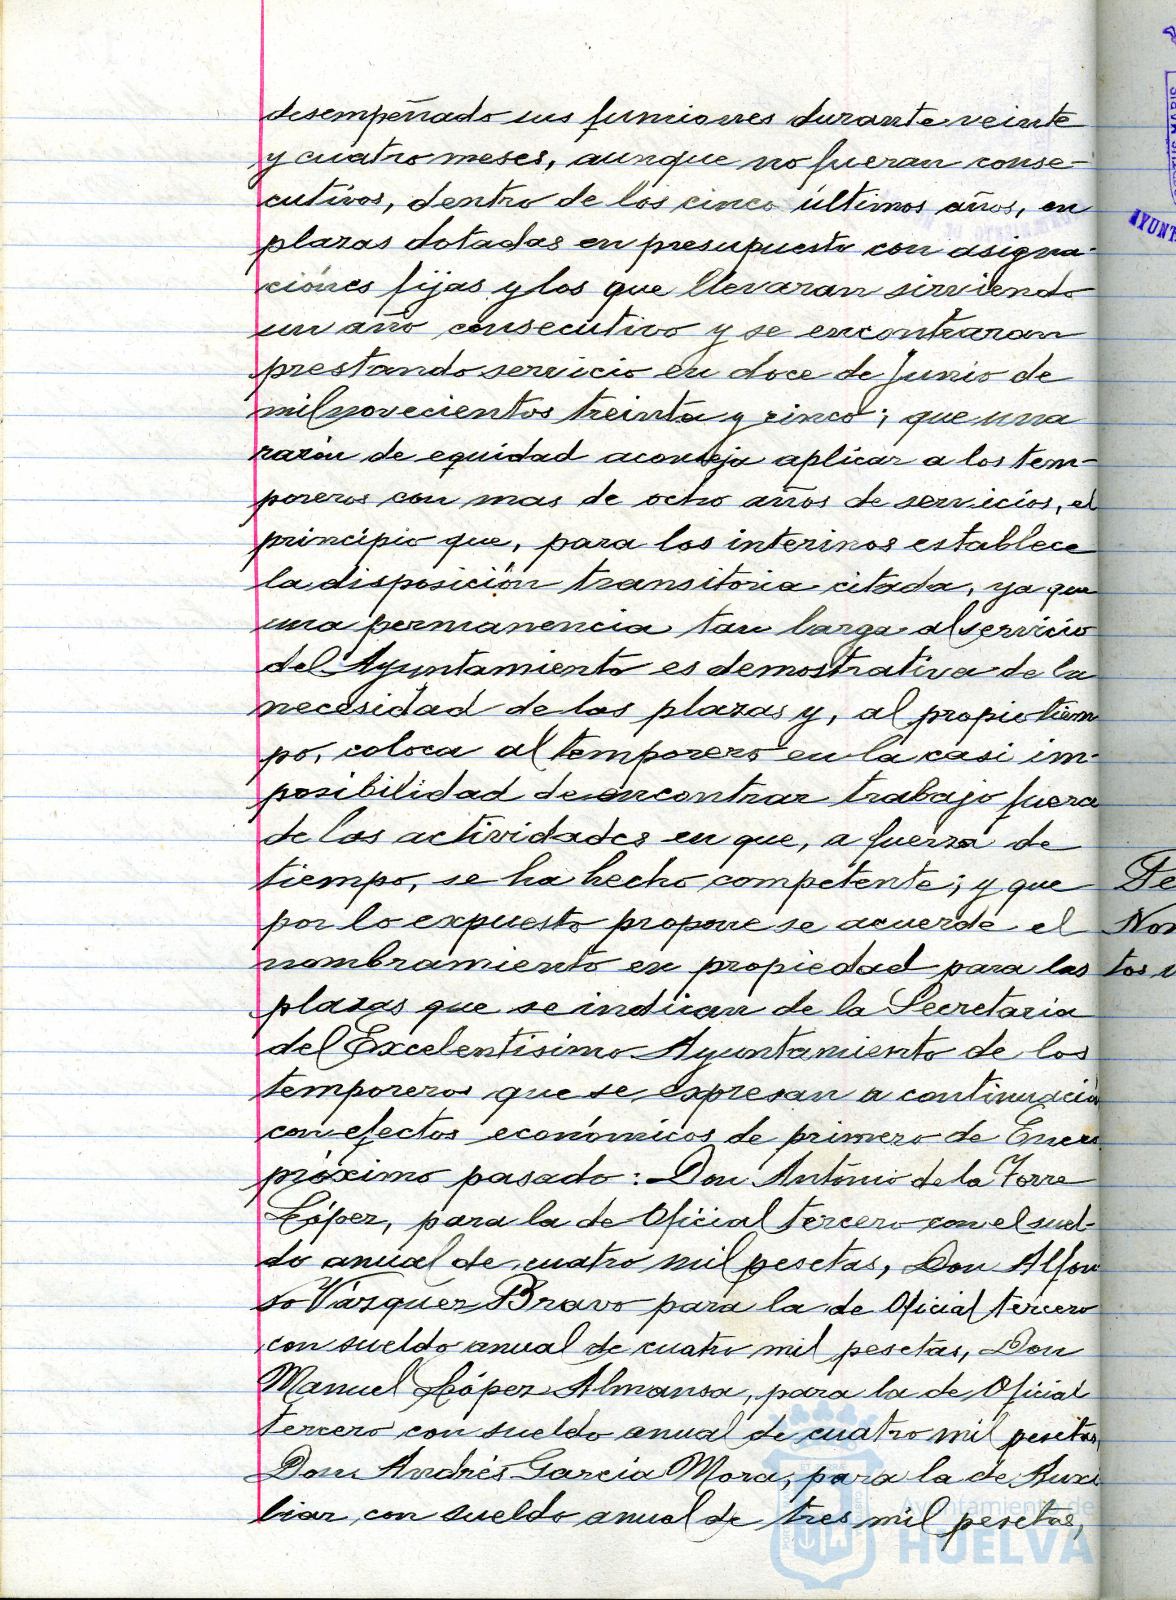 desempeñado sus funciones durante veinte
y cuatro meses, aunque no fueran conse-
cutivos, dentro de los cinco últimos años, en
plazas dotadas en presupuesto con asigna-
ciónes fijas y los que llevaran sirviendo
un año consecutivo y se encontraran
prestando servicio en doce de Junio de
mil novecientos treinta y cinco; que una
razón de equidad aconseja aplicar a los tem-
poreros con mas de ocho años de servicios, el
principio que, para los interinos establece
la disposición transitoria citada, ya que
una permanencia tan larga al servicio
del Ayuntamiento es demostrativa de la
necesidad de las plazas y, al propio tiem
po, coloca al temporero en la casi im-
posibilidad de encontrar trabajo fuera
de las actividades en que, a fuerza de
tiempo, se ha hecho competente; y que
por lo expuesto propone se acuerde el
nombramiento en propiedad para las
plazas que se indican de la Secretaria
del Excelentísimo Ayuntamiento de los
temporeros que se expresan a continuació
con efectos económicos de primero de Enero
próximo pasado: Don António de la Torre
López, para la de Oficial tercero con el suel-
do anual de cuatro mil pesetas, Don Alfon
so Vázquez Bravo para la de Oficial tercero
con sueldo anual de cuatro mil pesetas, Don
Manuel López Almansa, para la de Oficial
tercero con sueldo anual de cuatro mil pesetas
Don Andrés García Mora, para la de Auxi
liar con sueldo anual de tres mil pesetas,
De
Nom
tos
AYUNT
Ayuntamiento de
HUELVA